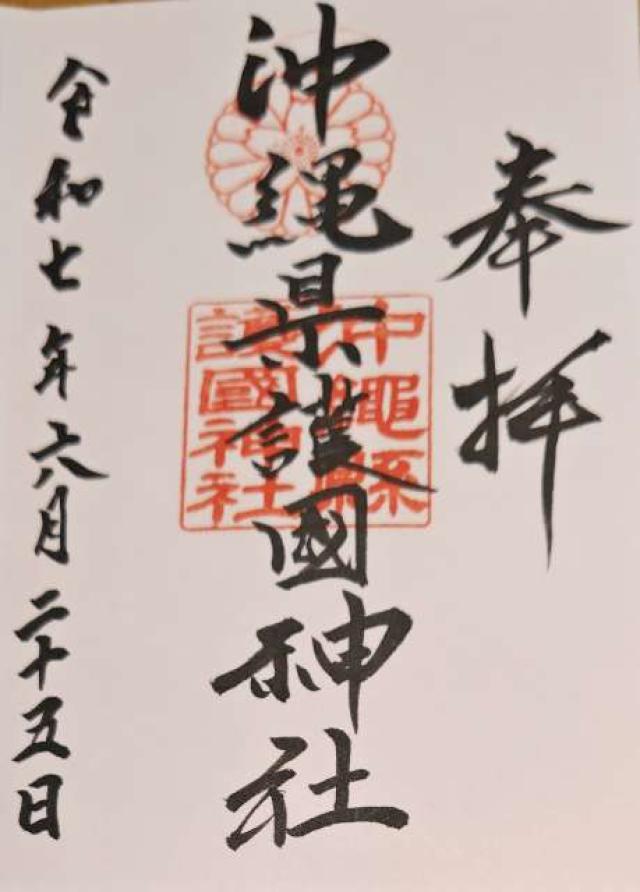 奉拝
沖縄県護國神社
沖繩縣
護國神社
令和七年六月二十五日